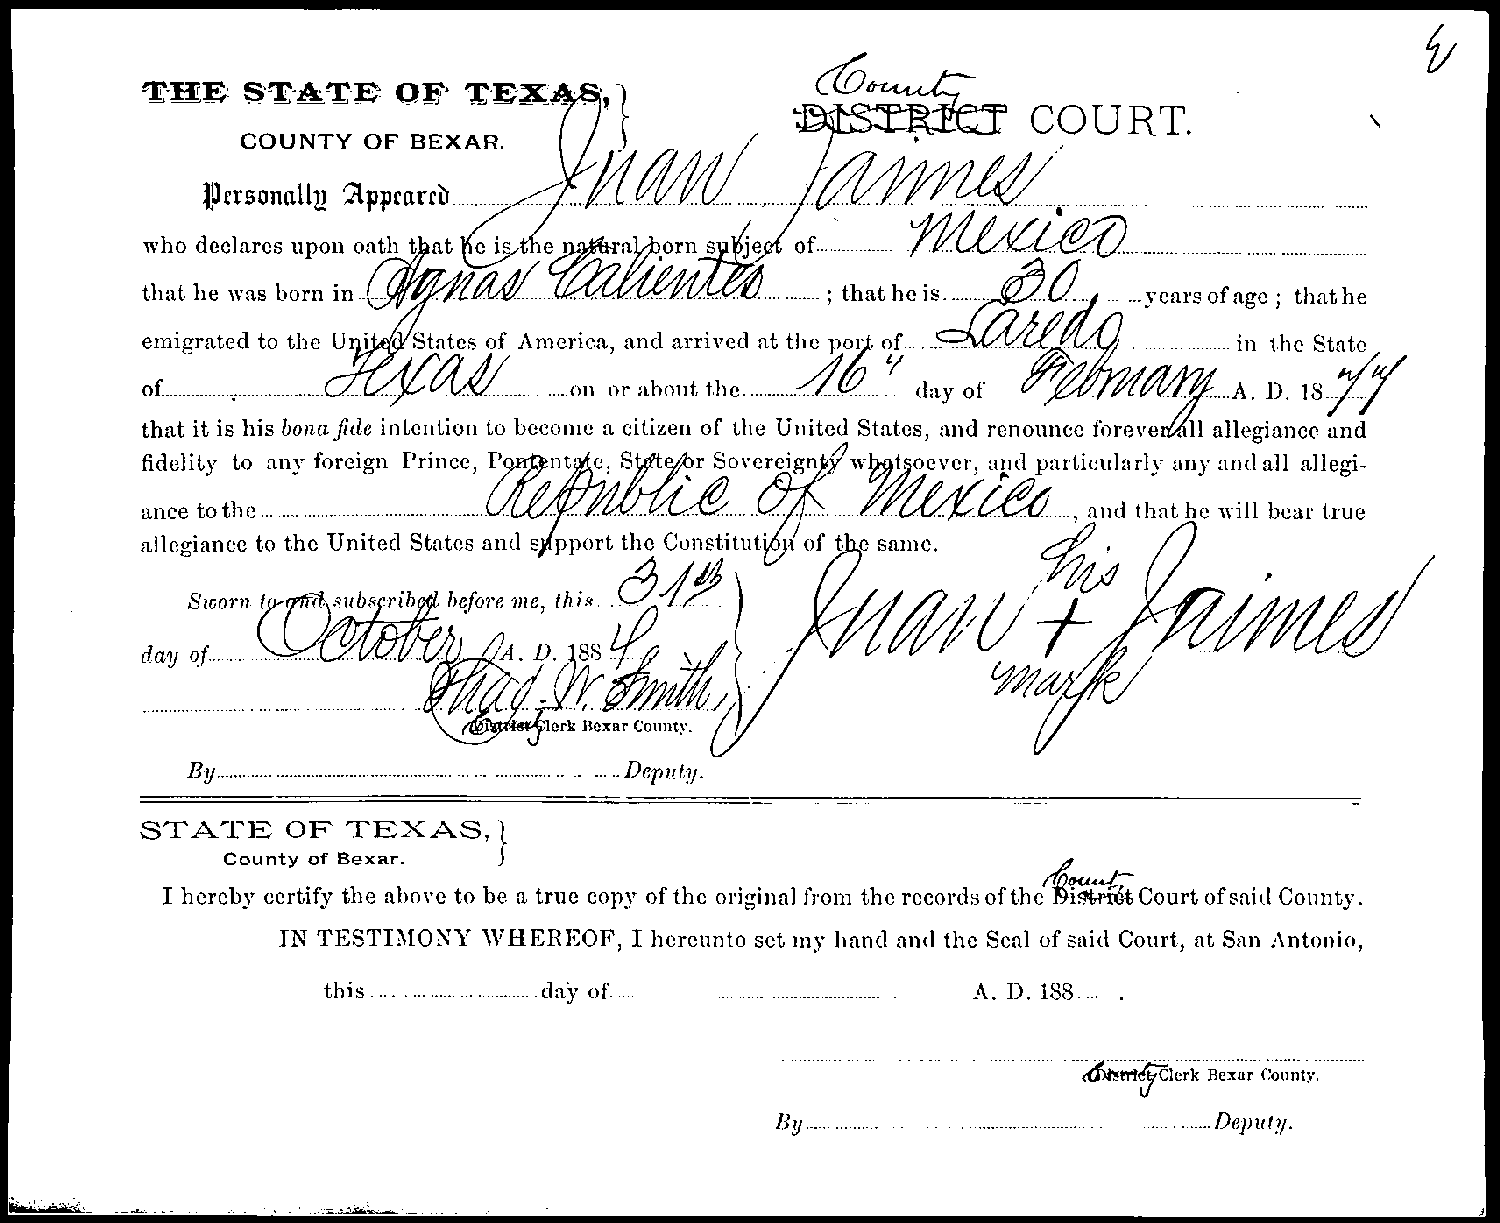 THE STATE OF TEXAS,
COUNTY OF BEXAR.
County
DISTRICT COURT.
Personally Appeared Juan Jaimes
who declares upon oath that he is the natural born subject of Mexico
that he was born in Aguas Calientes ; that he is 30 years of age ; that he
emigrated to the United States of America, and arrived at the port of Laredo in the State
of Texas on or about the 16" day of February A. D. 1877
that it is his bona fide intention to become a citizen of the United States, and renounce forever all allegiance and
fidelity to any foreign Prince, Pontentate, State or Sovereignty whatsoever, and particularly any and all allegi-
ance to the Republic of Mexico , and that he will bear true
allegiance to the United States and support the Constitution of the same.
Sworn to and subscribed before me, this 31st
day of October A. D. 1884
Thad. W. Smith,
County
District Clerk Bexar County.
By Deputy.
his
Juan + Jaimes
mark
STATE OF TEXAS,
County of Bexar.
County
I hereby certify the above to be a true copy of the original from the records of the District Court of said County.
IN TESTIMONY WHEREOF, I hereunto set my hand and the Seal of said Court, at San Antonio,
this day of A. D. 188 .
County
District Clerk Bexar County.
By Deputy.